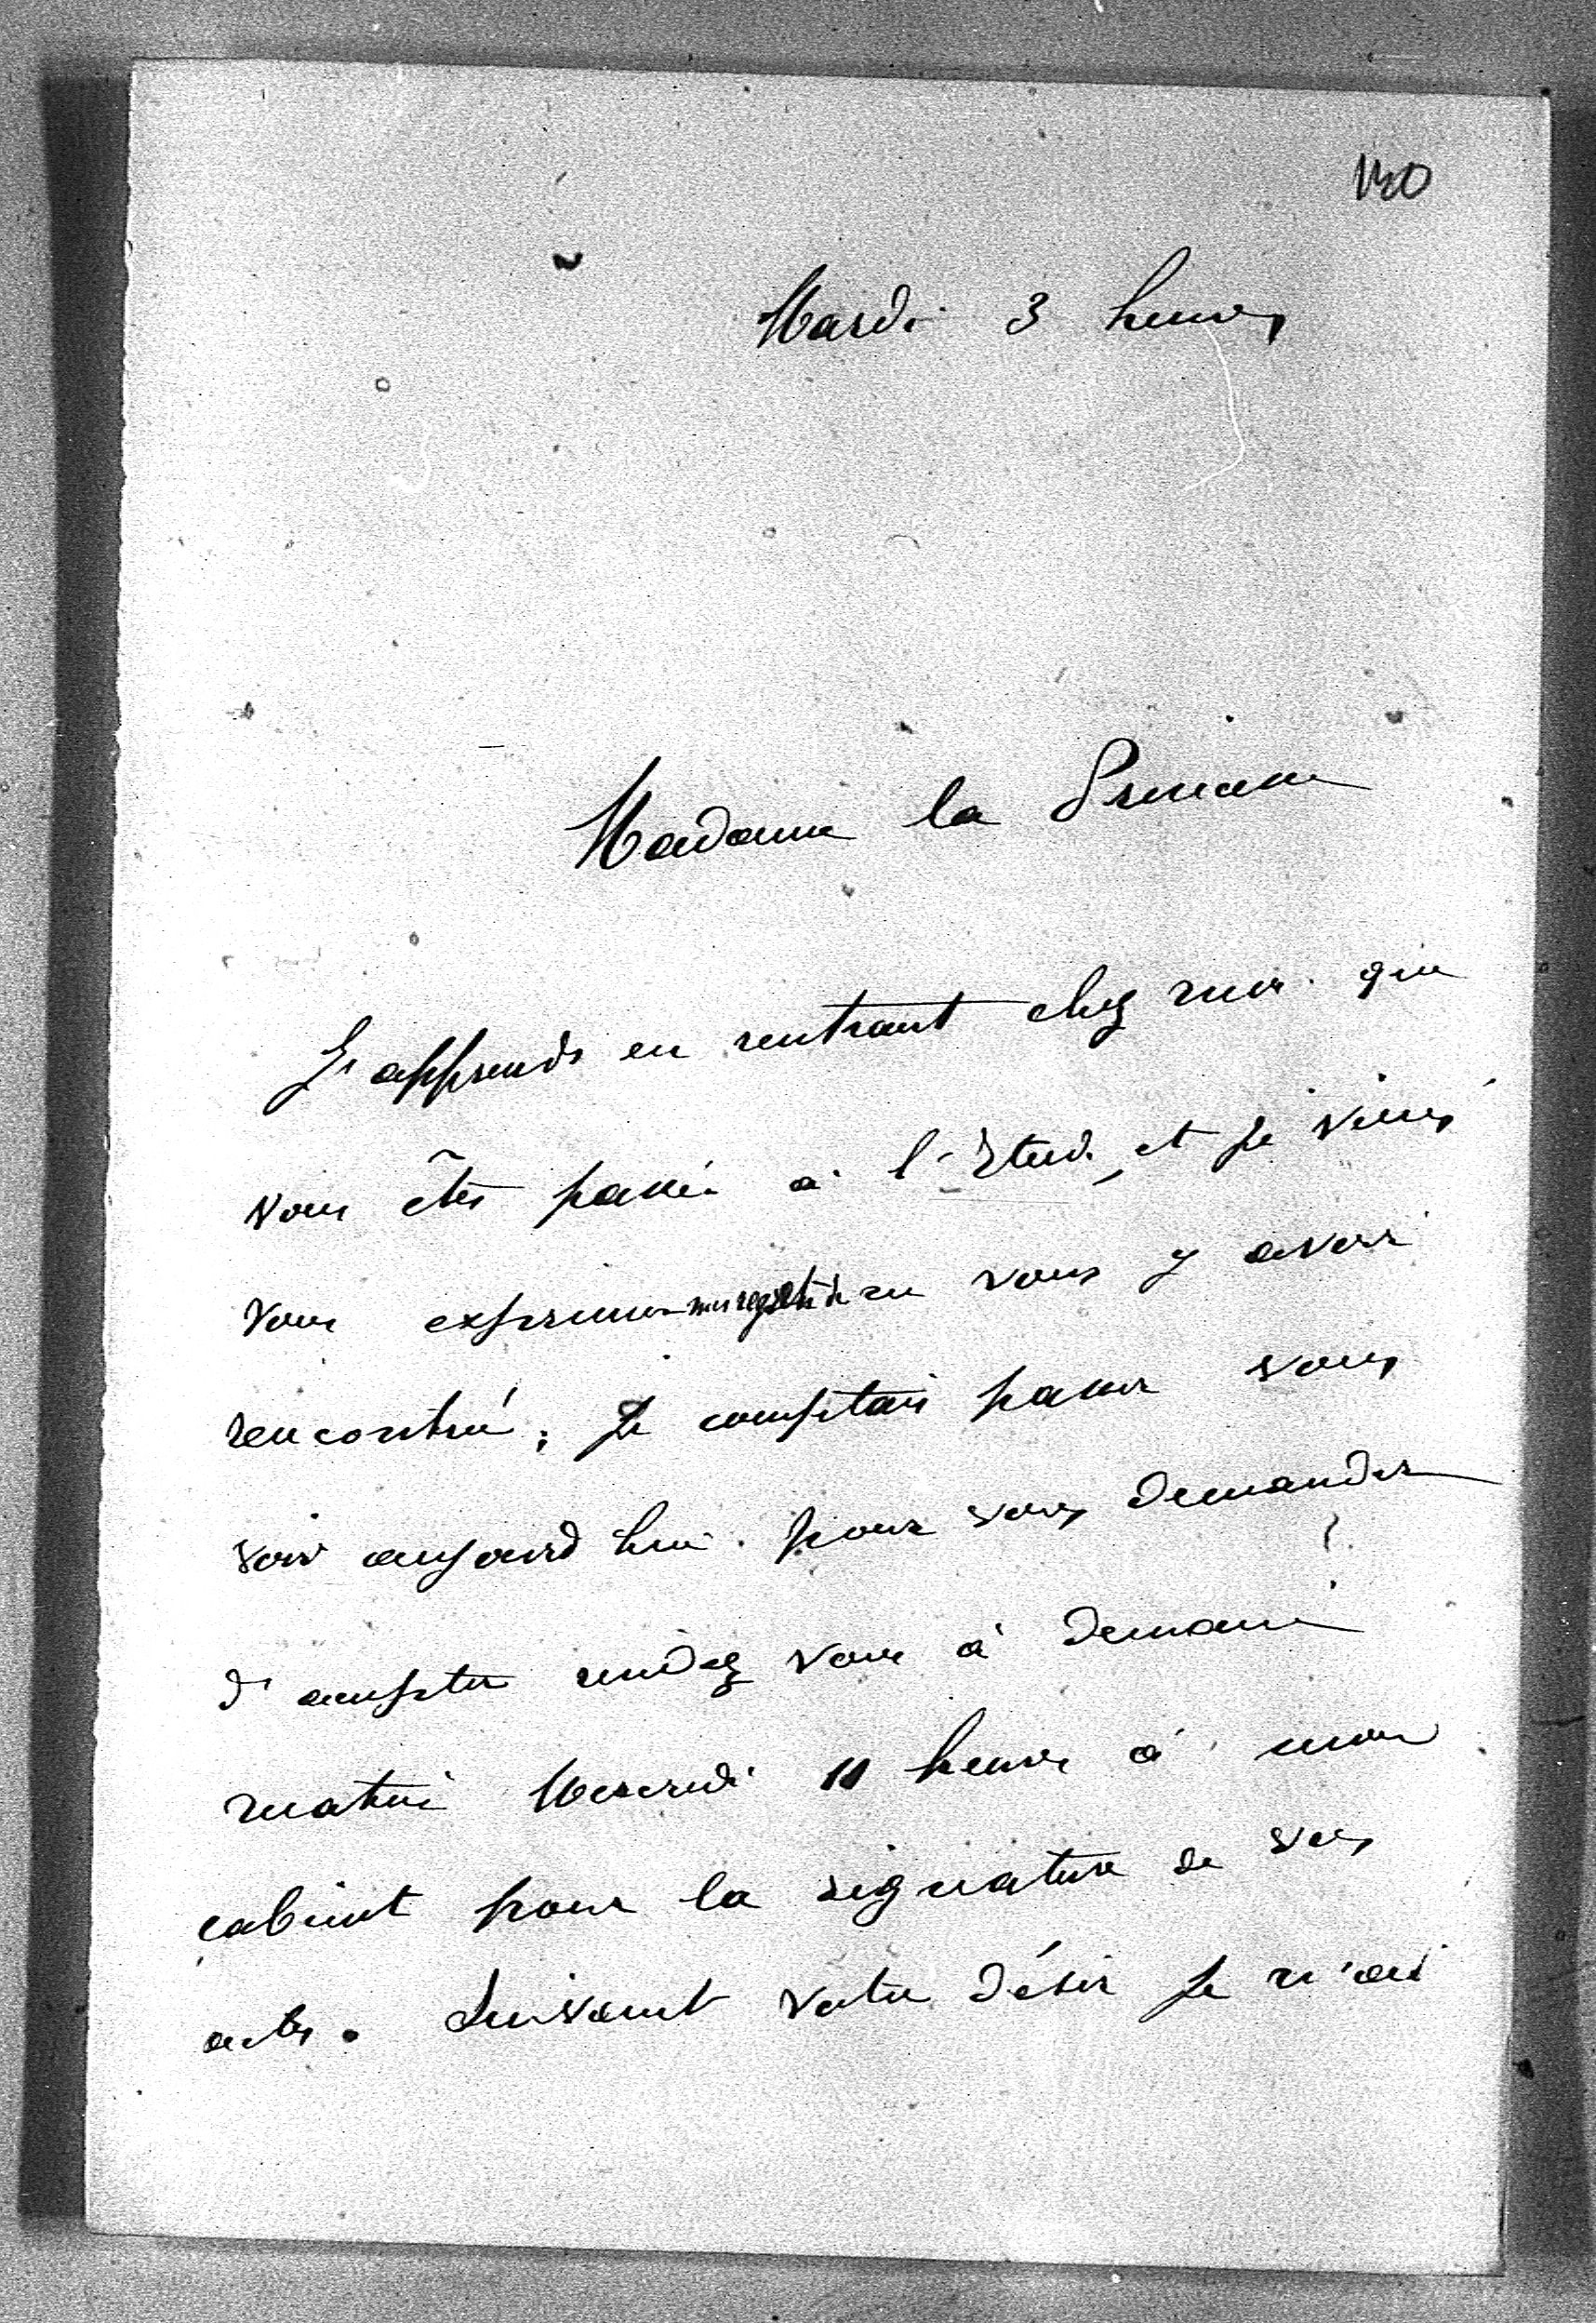 130
Mardi 3 heures
Madame la Princesse
J'apprends en rentrant chez moi que
vous êtes passée à l'Etude, et je viens
vous exprimer mes regrets de ne vous y avoir
rencontré; Je comptais passer vous
voir aujourd'hui pour vous demander
d'accepter rendez vous à demain
matin Mercredi 11 heures à mon
cabinet pour la signature de vos
actes. Suivant votre désir je n'ai